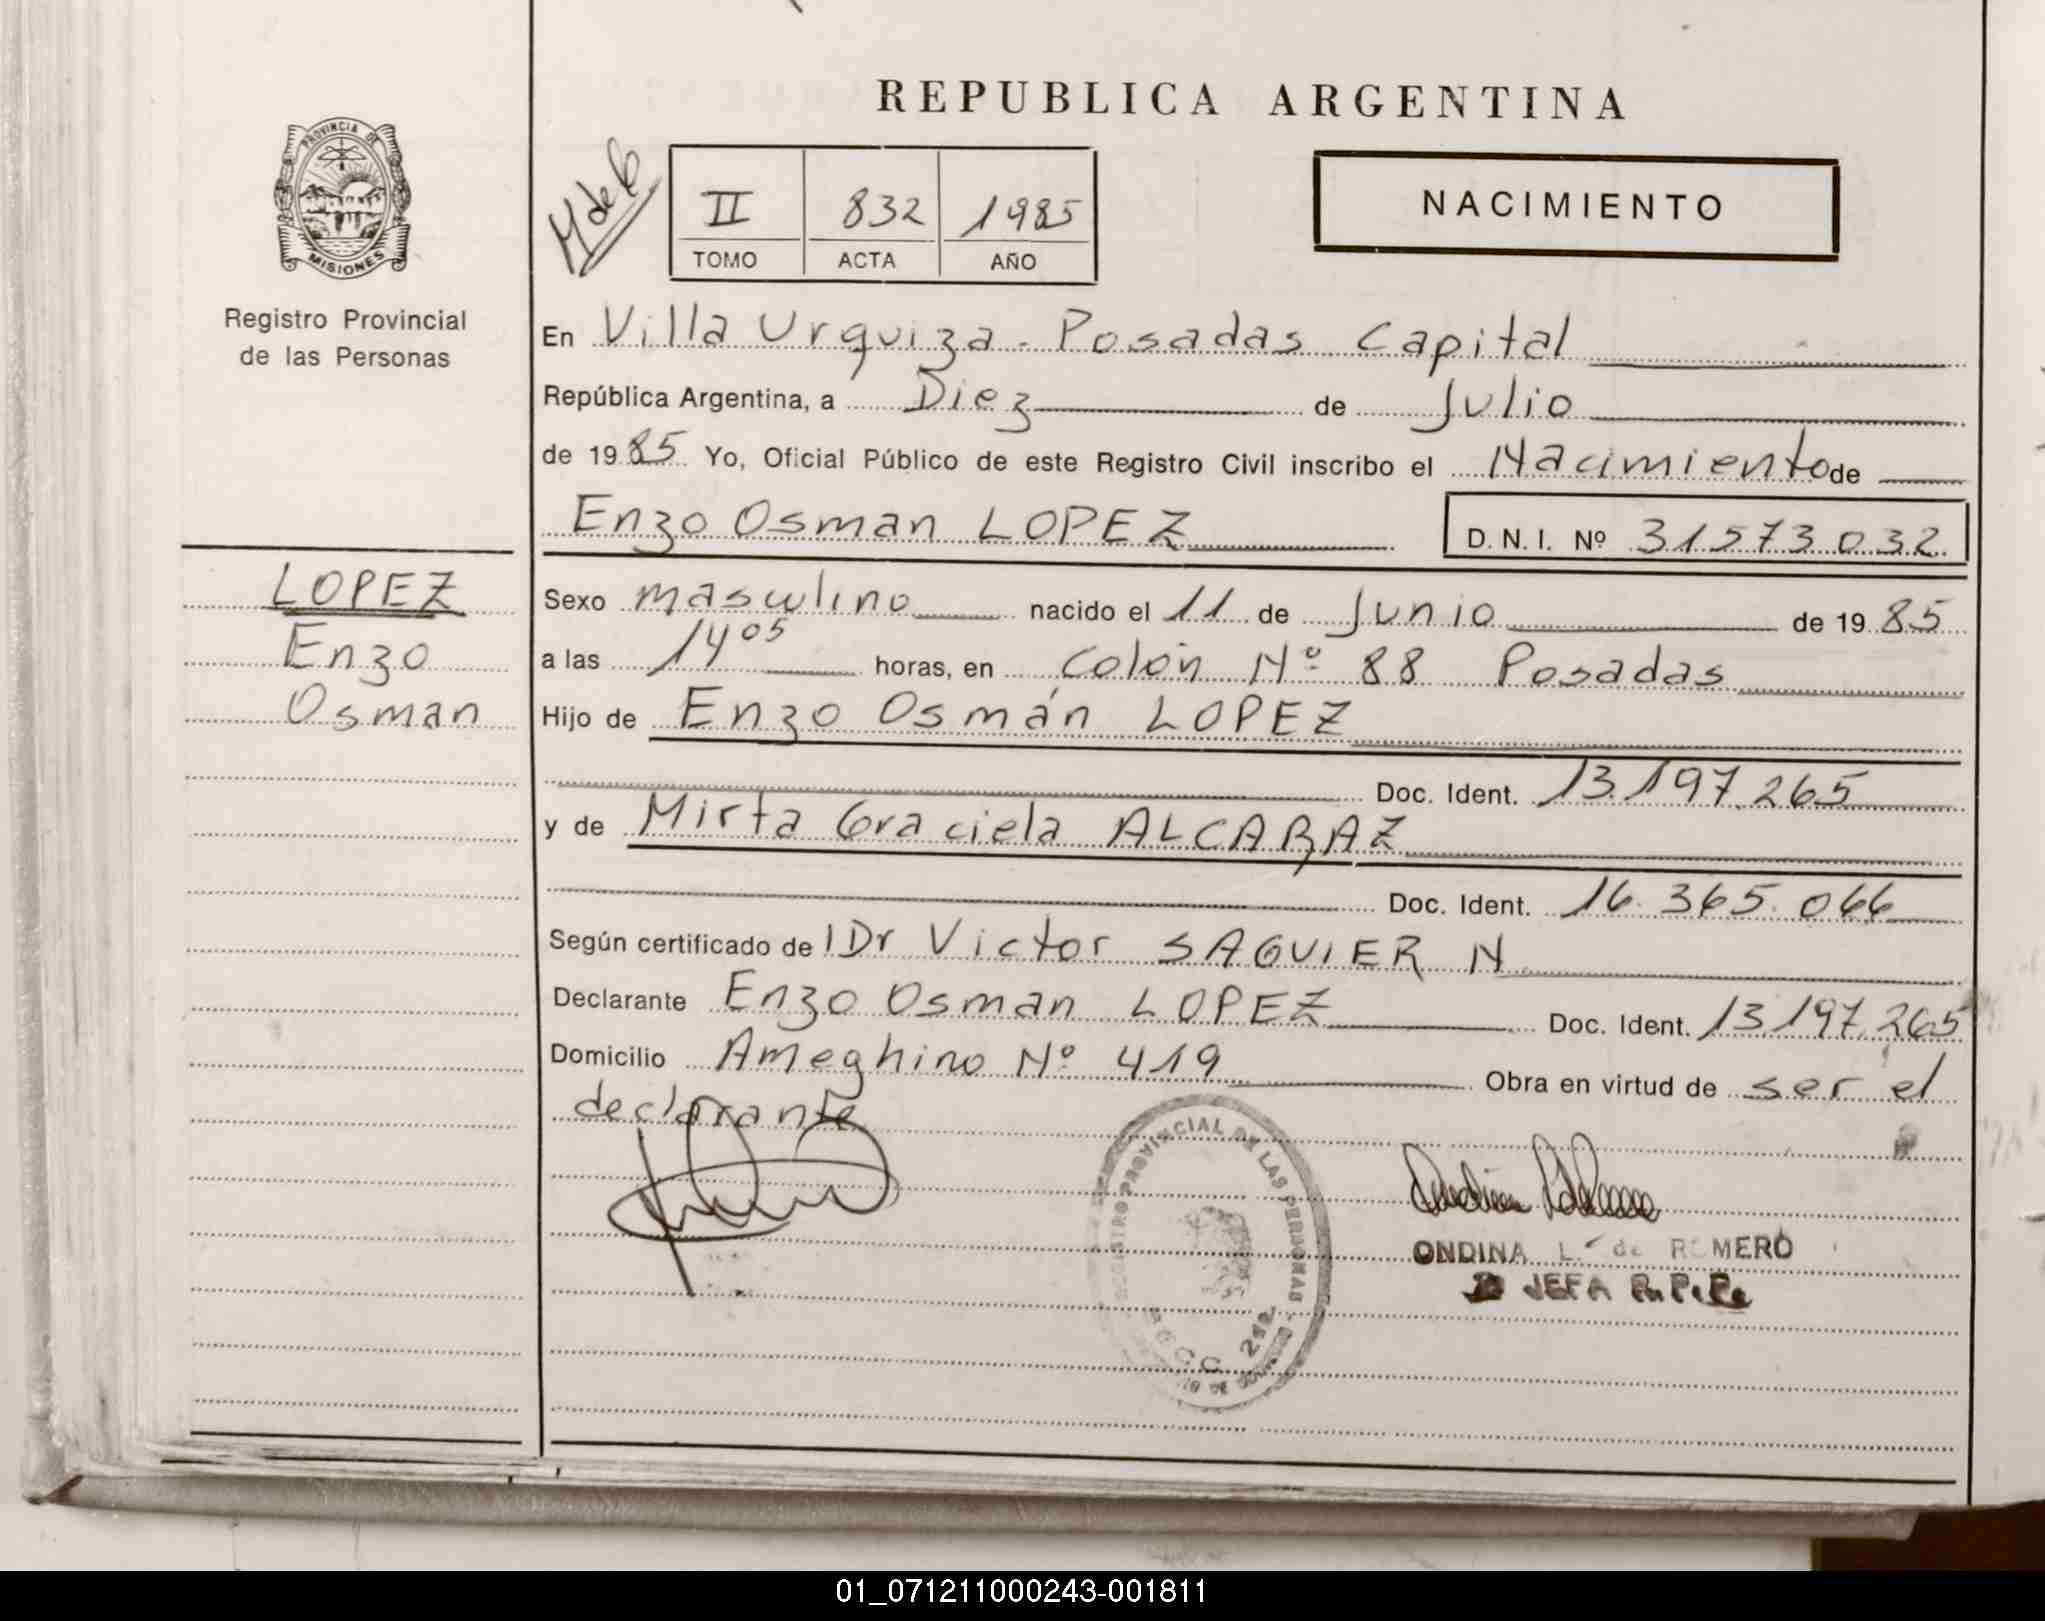 REPUBLICA ARGENTINA
PROVINCIA DE
MISIONES
Registro Provincial
de las Personas
II 832 1985
TOMO ACTA AÑO
NACIMIENTO
En Villa Urquiza - Posadas Capital
República Argentina, a Diez de Julio
de 1985 Yo, Oficial Público de este Registro Civil inscribo el Nacimiento de
Enzo Osman LOPEZ D.N.I. Nº 31573032
LOPEZ
Enzo
Osman
Sexo masculino nacido el 11 de Junio de 1985
a las 14 05 horas, en Colón Nº 88 Posadas
Hijo de Enzo Osmán LOPEZ
Doc. Ident. 13.197.265
y de Mirta Graciela ALCARAZ
Doc. Ident. 16.365.066
Según certificado de Dr Victor SAGUIER N
Declarante Enzo Osman LOPEZ Doc. Ident. 13197.265
Domicilio Ameghino Nº 419 Obra en virtud de ser el
declarante
REGISTRO PROVINCIAL DE LAS PERSONAS
ONDINA L. de ROMERO
JEFA
01_071211000243-001811